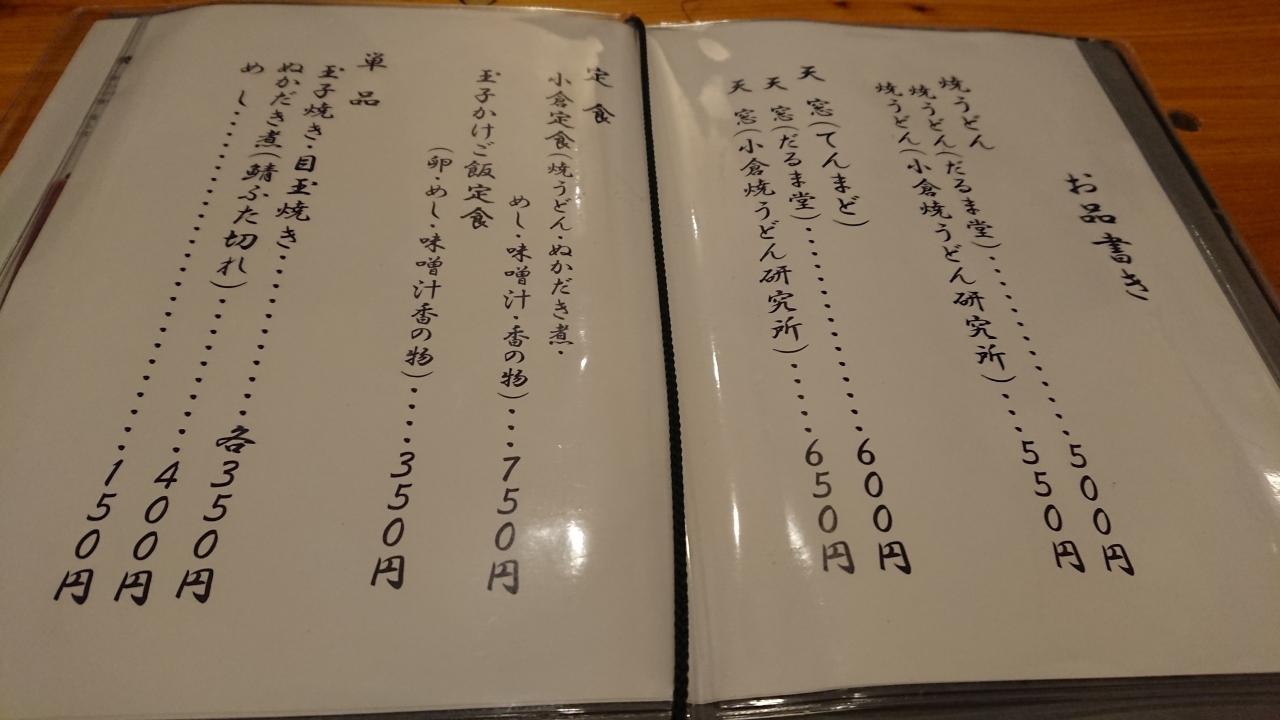 お品書き
焼うどん
焼うどん(だるま堂)・・・・・・・・・・・500円
焼うどん(小倉焼うどん研究所)・・・550円
天窓(てんまど)
天窓(だるま堂)・・・・・・・・・・・600円
天窓(小倉焼うどん研究所)・・・・650円
定食
小倉定食(焼うどん・ぬかだき煮・
めし・味噌汁・香の物)・・・750円
玉子かけご飯定食
(卵・めし・味噌汁香の物)・・・・350円
単品
玉子焼き・目玉焼き・・・・・・・・・各350円
ぬかだき煮(鯖ふた切れ)・・・・・・・・400円
めし・・・・・・・・・・・・・・・・・・・・150円